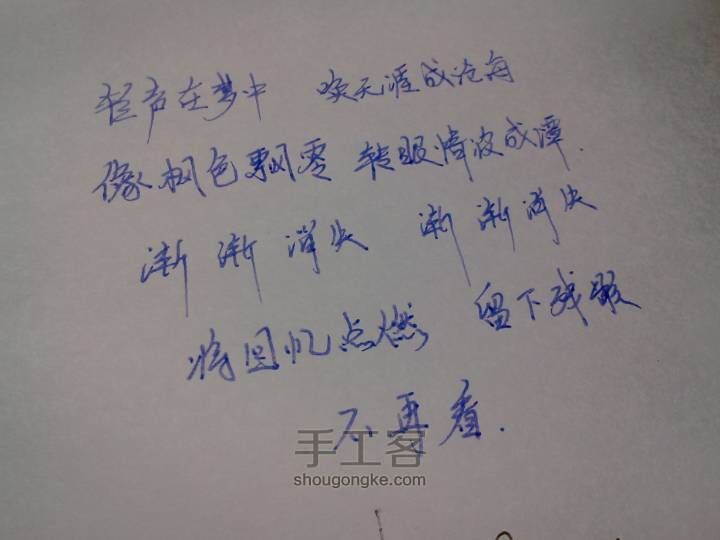 声在梦中 笑天涯成沧海
像树色飘零 转眼清波成潭.
渐渐消失 渐渐消失
将回忆点燃 留下残骸
不再看.
手工客
shougongke.com